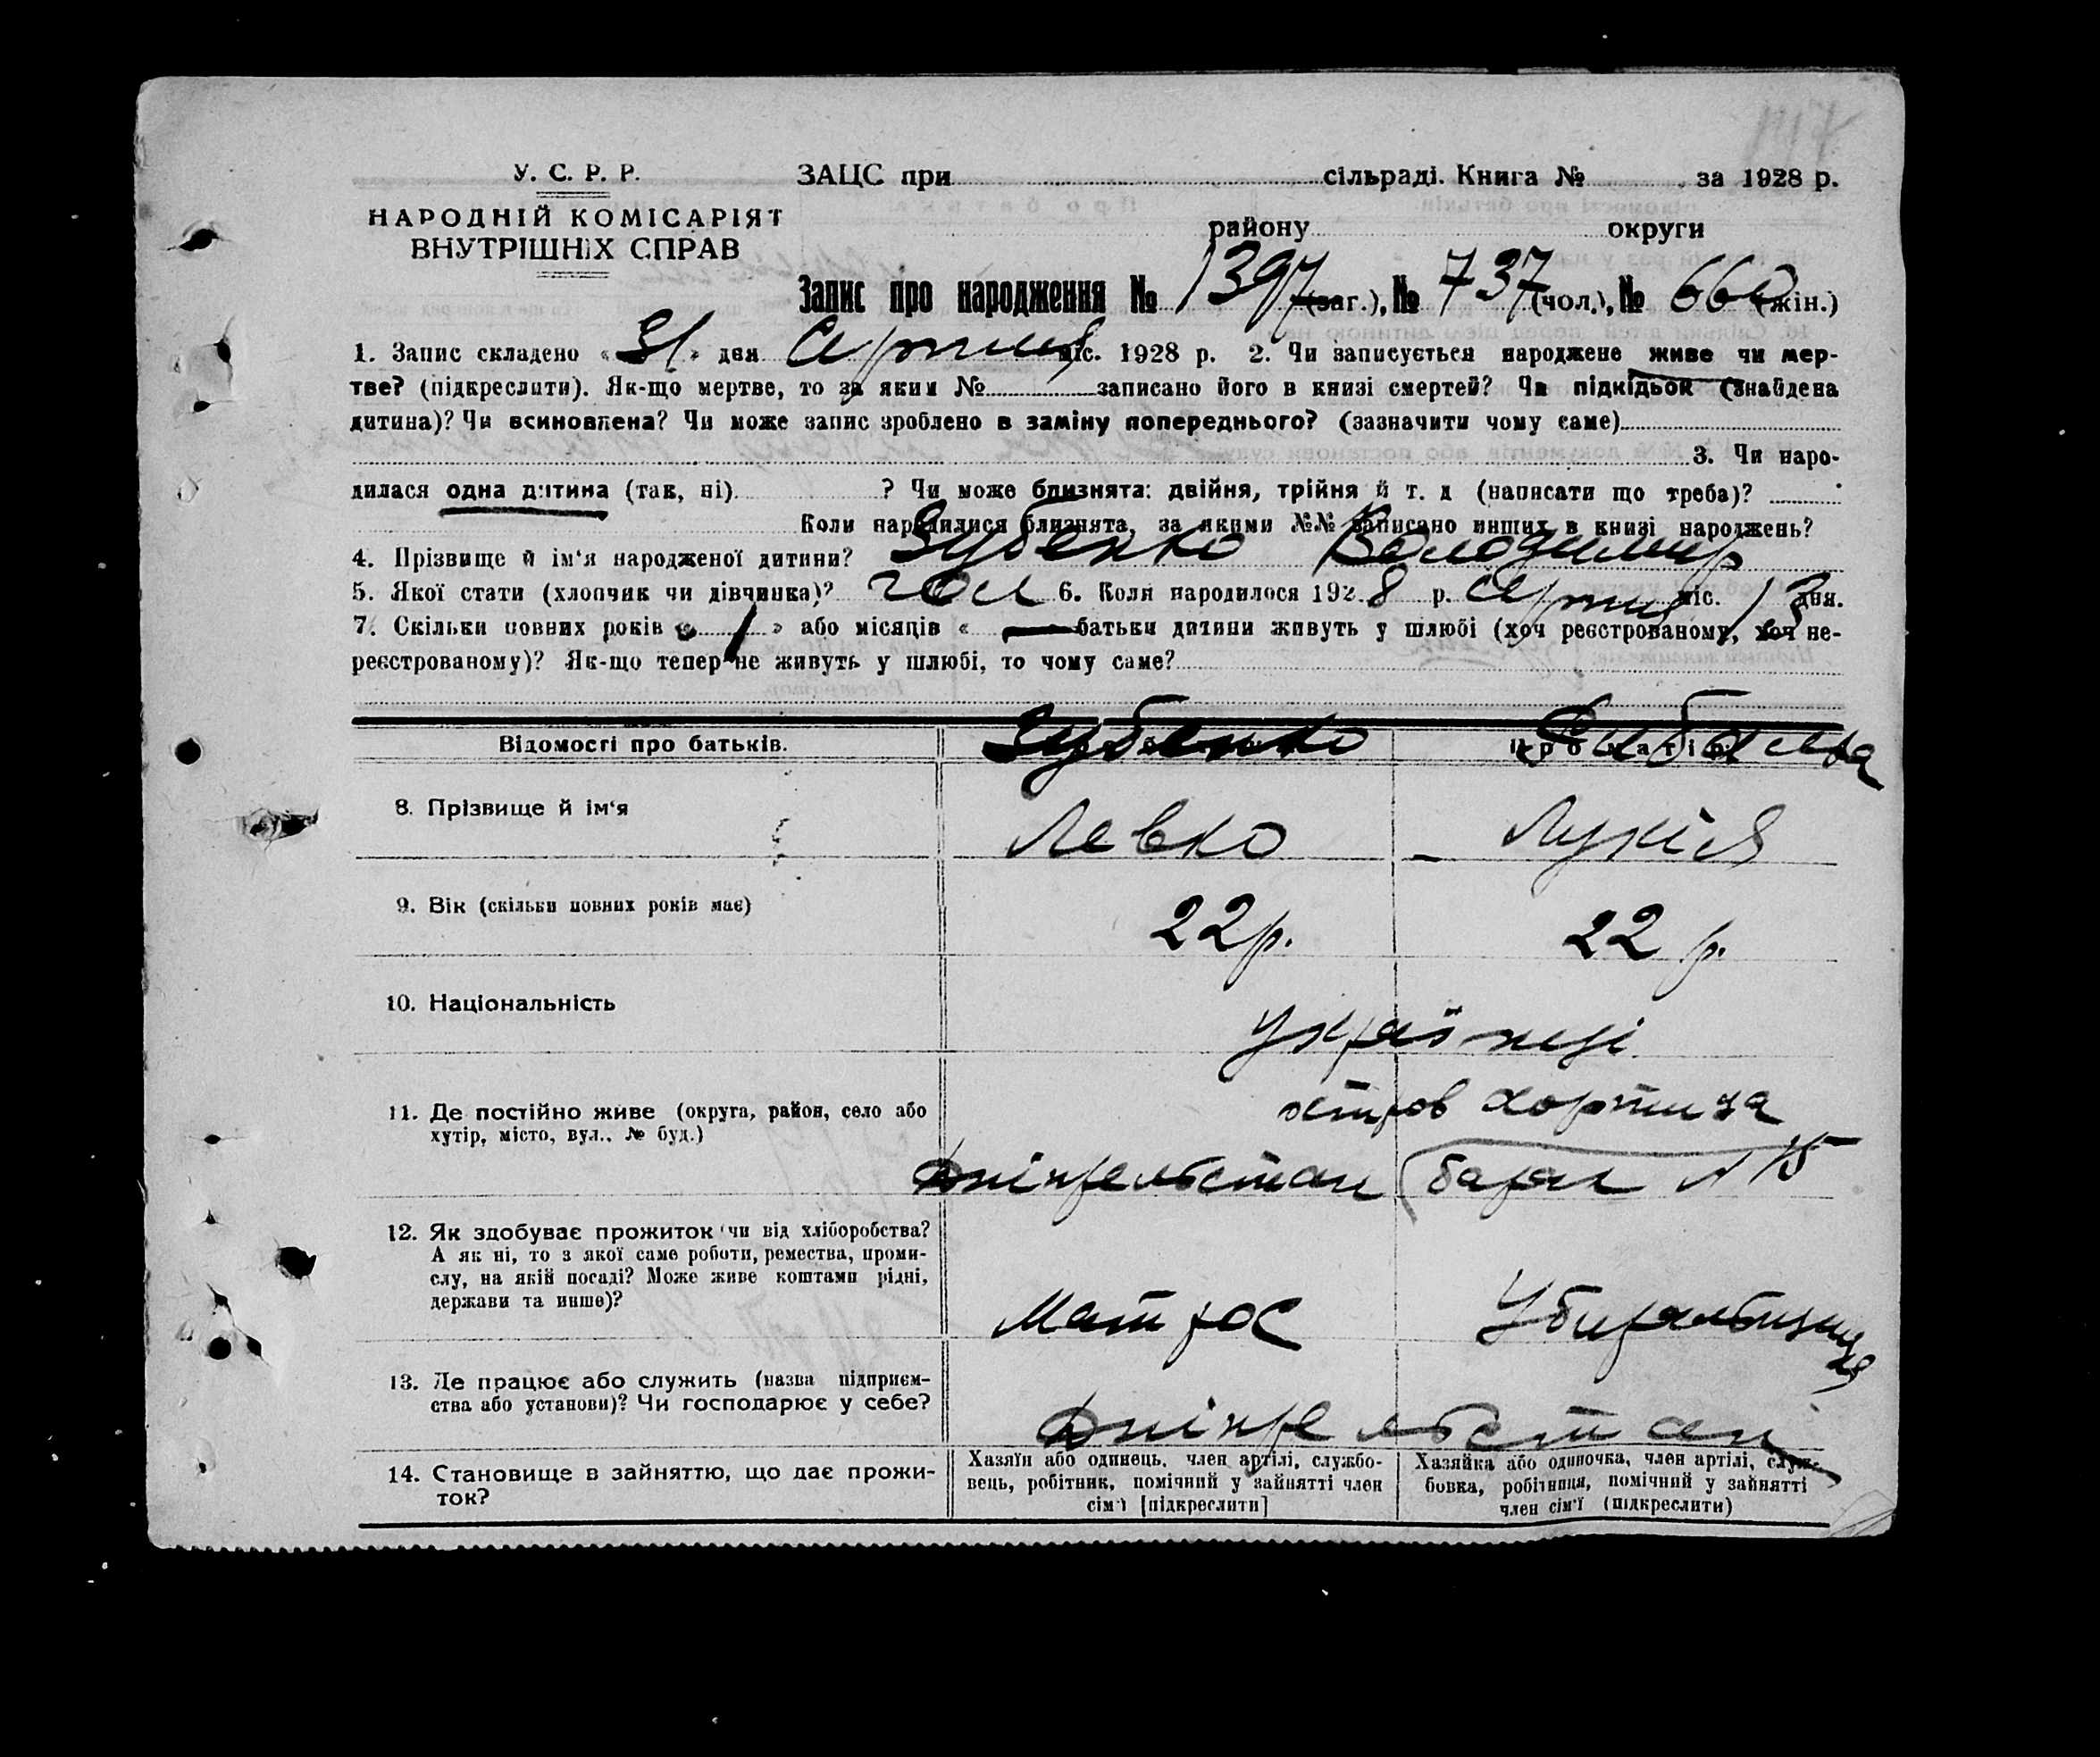 У. С. Р. Р.
НАРОДНІЙ КОМІСАРІЯТ
ВНУТРІШНІХ СПРАВ
ЗАЦС при сільраді. Книга № за 1928 р.
району округи
Запис про народження № 1397 (заг.), № 737 (чол.), № 660 (жін.)
1. Запис складено « 31 » дня Серпня міс. 1928 р. 2. Чи записується народжене живе чи мер-
тве? (підкреслити). Як-що мертве, то за яким № записано його в книзі смертей? Чи підкідьок (знайдена
дитина)? Чи всиновлена? Чи може запис зроблено в заміну попереднього? (зазначити чому саме)
3. Чи наро-
дилася одна дитина (так, ні) ? Чи може близнята: двійня, трійня й т. д (написати що треба)?
Коли народилися близнята, за якими №№ записано инших в книзі народжень?
4. Прізвище й ім'я народженої дитини? Зубенко Володимир
5. Якої стати (хлопчик чи дівчинка)? чол 6. Коли народилося 1928 р. Серпня міс. 13 дня.
7. Скільки повних років « 1 » або місяців « — батьки дитини живуть у шлюбі (хоч реєстрованому, хоч не-
реєстрованому)? Як-що тепер не живуть у шлюбі, то чому саме?
Відомості про батьків. Зубенко про матір
8. Прізвище й ім'я Левко Лукія
9. Вік (скільки повних років має) 22 р. 22 р.
10. Національність Українці
11. Де постійно живе (округа, район, село або
хутір, місто, вул., № буд.)
остров Хортица
Дніпрельстан барак № 15
12. Як здобуває прожиток чи від хліборобства?
А як ні, то з якої саме роботи, ремества, проми-
слу, на якій посаді? Може живе коштами рідні,
держави та инше)?
Матрос Убиральниця
13. Де працює або служить (назва підприєм-
ства або установи)? Чи господарює у себе?
Дніпрельстан
14. Становище в зайняттю, що дає прожи-
ток?
Хазяїн або одинець, член артілі, службо-
вець, робітник, помічний у зайнятті член
сім'ї [підкреслити]
Хазяйка або одиночка, член артілі, служ-
бовка, робітниця, помічний у зайнятті
член сім'ї (підкреслити)